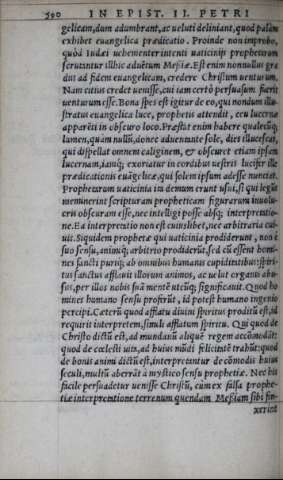 590 IN EPIST. II. PETRI
gelicam, dum adumbrant, ac ueluti deliniant, quod palàm
exhibet euangelica prædicatio. Proinde non improbo,
quòd Iudæi uehementer intenti uaticinijs prophetarum
scrutantur illhic aduētum Messiæ. Est enim nonnullus gra
dus ad fidem euangelicam, credere Christum uenturum.
Nam citius credet uenisse, cui iam certò persuasum fuerit
uenturum esse. Bona spes est igitur de eo, qui nondum illu-
stratus euangelica luce, prophetis attendit, ceu lucernæ
apparēti in obscuro loco. Præstat enim habere qualecūq;
lumen, quàm nullū, donec aduentante sole, dies illucescat,
qui dispellat omnem caliginem, & obscuret etiam ipsam
lucernam, iamq; exoriatur in cordibus uestris lucifer ille
prædicationis euāgelicæ, qui solem ipsum adesse nunciat.
Prophetarum uaticinia ita demum erunt usui, si qui legūt
meminerint scripturam propheticam figurarum inuolu-
cris obscuram esse, nec intelligi posse absq; interpretatio-
ne. Ea interpretatio non est cuiuslibet, nec arbitraria cui
uis. Siquidem prophetæ qui uaticinia prodiderunt, non è
suo sensu, animiq; arbitrio prodiderūt, sed cū essent homi-
nes sancti puriq; ab omnibus humanis cupiditatibus: spiri-
tus sanctus afflauit illorum animos, ac uelut organis abu-
sus, per illos nobis suā mentē utcūq; significauit. Quod ho
mines humano sensu profērūt, id potest humano ingenio
percipi. Cæterū quod afflatu diuini spiritus proditū est, id
requirit interpretem, simili afflatum spiritu. Qui quod de
Christo dictū est, ad mundanū aliquē regem accōmodāt:
quod de cœlesti uita, ad huius mūdi felicitatē trahūt: quod
de bonis animi dictū est, interpretantur de cōmodis huius
seculi, multū aberrāt à mystico sensu prophetiæ. Nec his
facile persuadetur uenisse Christū, cùm ex falsa prophe-
tiæ interpretatione terrenum quendam Messiam sibi fin-
xerint